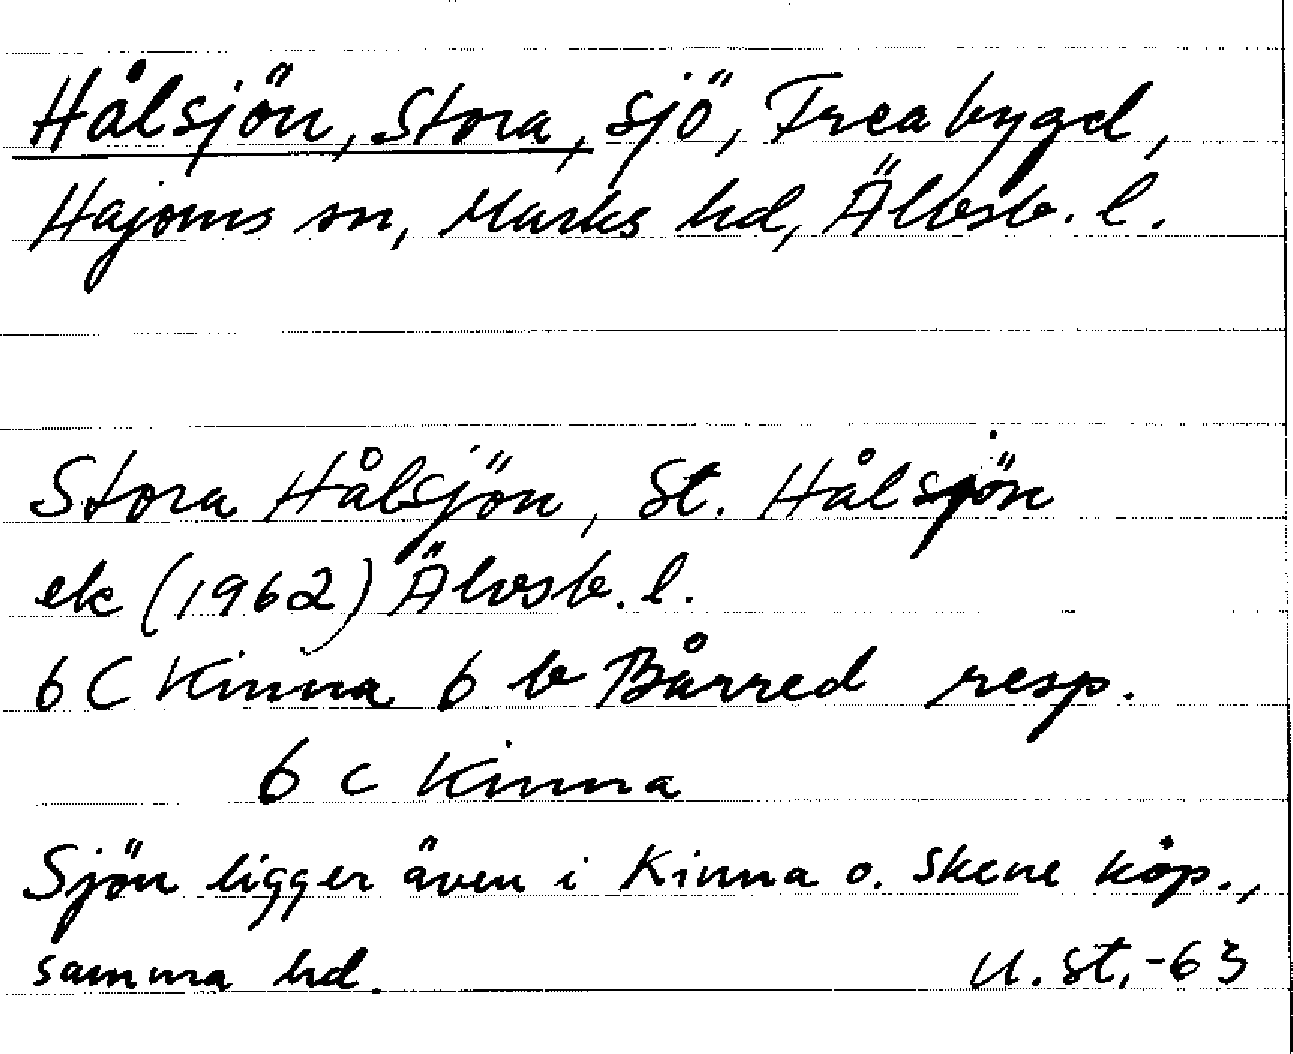 Hålsjön, Stora, sjö, Freabygd,
Hajoms sn, Marks hd, Älvsb. l.
Stora Hålsjön, St. Hålsjön
ek (1962) Älvsb. l.
6 C Kinna 6 b Bårred resp.
6 c Kinna
Sjön ligger även i Kinna o. Skene köp.,
samma hd.
U. St, -63